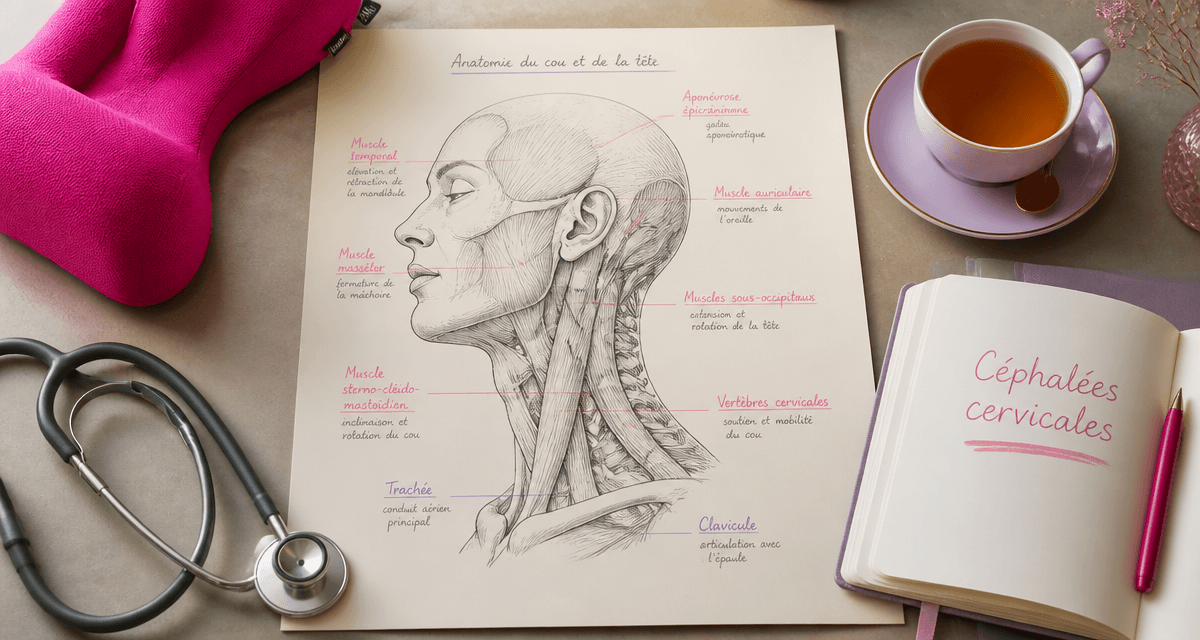 Anatomie du cou et de la tête
Aponévrose
épicrânienne
aponévrotique
Muscle
temporal
élévation et
rétraction de
la mandibule
Muscle auriculaire
mouvements de
l'oreille
Muscle
masséter
fermeture de
la mâchoire
Muscles sous-occipitaux
extension et
rotation de la tête
Muscle
sterno-cléido-
mastoïdien
inclinaison et
rotation du cou
Vertèbres cervicales
soutien et mobilité
du cou
Trachée
conduit aérien
principal
Clavicule
articulation avec
l'épaule
Céphalées
cervicales